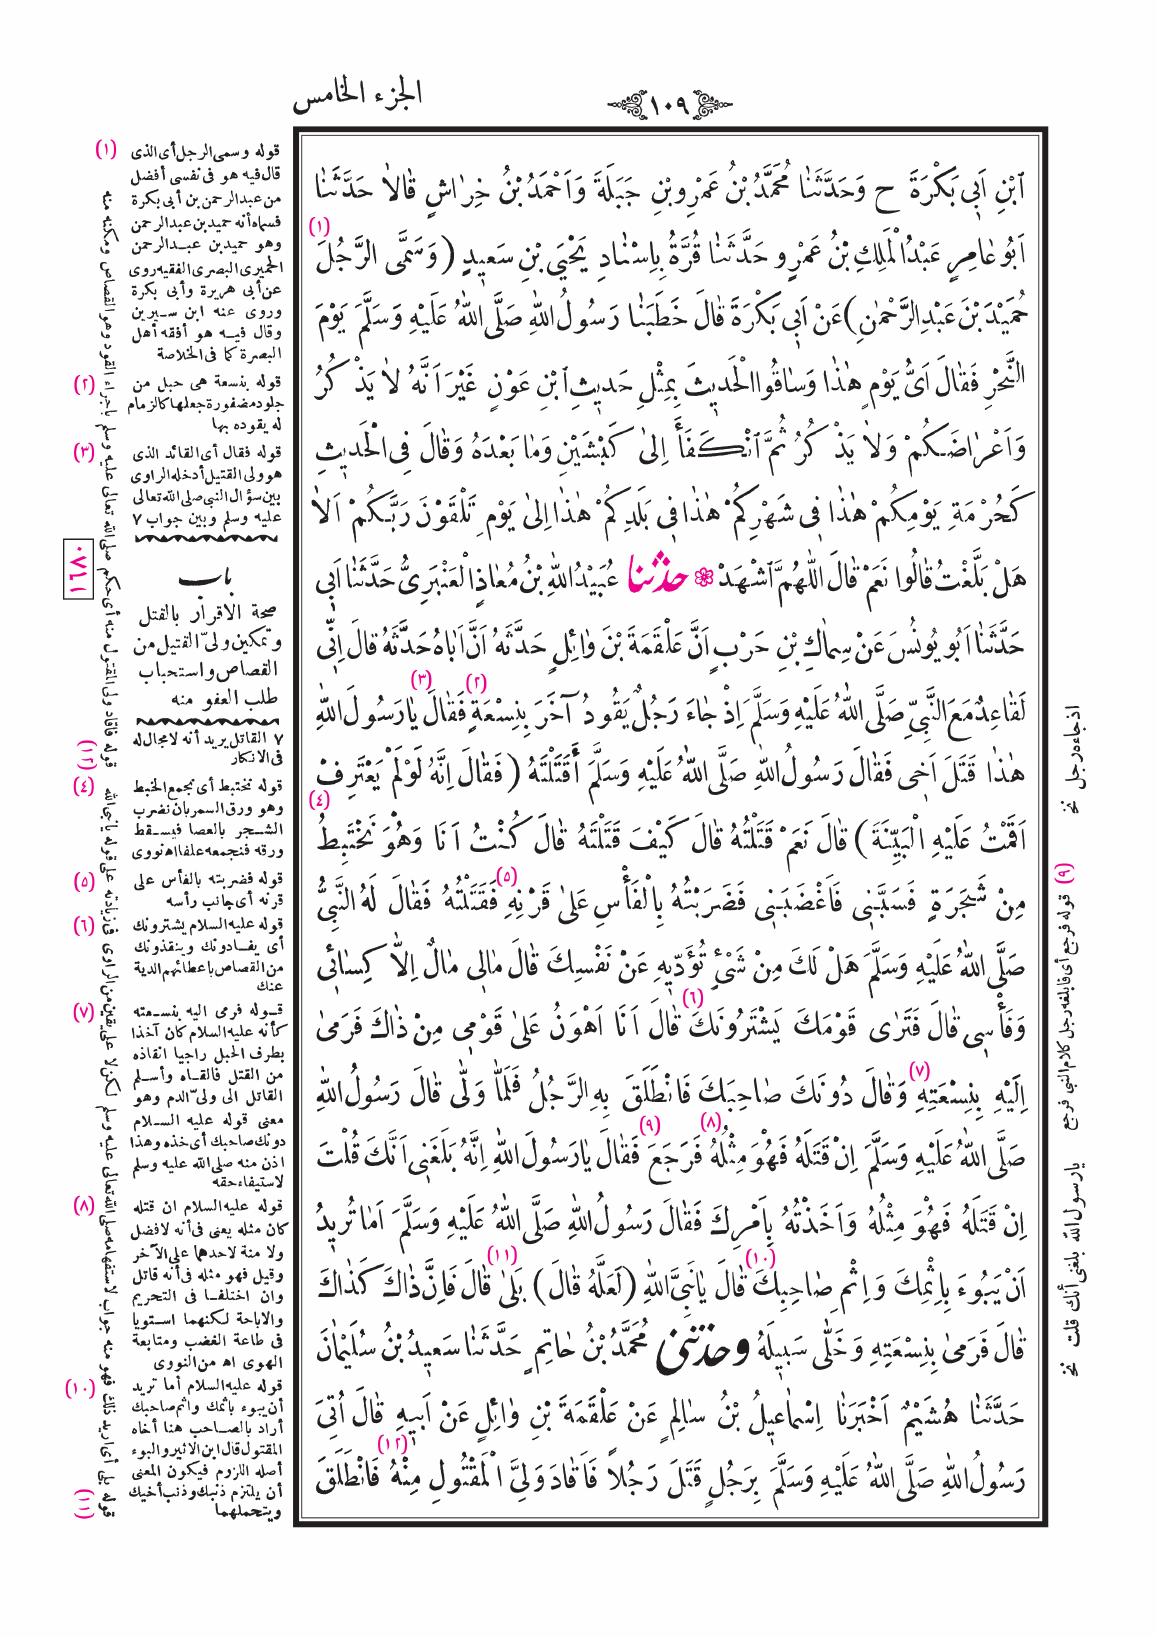 الجزء الخامس
١٠٩
ٱبْنِ اَبِى بَكْرَةَ ح وَحَدَّثَنَا مُحَمَّدُ بْنُ عَمْرِو بْنِ جَبَلَةَ وَاَحْمَدُ بْنُ خِرَاشٍ قَالَا حَدَّثَنَا
اَبُو عَامِرٍ عَبْدُ الْمَلِكِ بْنُ عَمْرٍو حَدَّثَنَا قُرَّةُ بِاِسْنَادِ يَحْيَى بْنِ سَعِيدٍ (وَسَمَّى الرَّجُلَ (١)
حُمَيْدَ بْنَ عَبْدِ الرَّحْمٰنِ) عَنْ اَبِى بَكْرَةَ قَالَ خَطَبَنَا رَسُولُ اللّٰهِ صَلَّى اللّٰهُ عَلَيْهِ وَسَلَّمَ يَوْمَ
النَّحْرِ فَقَالَ اَىُّ يَوْمٍ هٰذَا وَسَاقُوا الْحَدِيثَ بِمِثْلِ حَدِيثِ ٱبْنِ عَوْنٍ غَيْرَ اَنَّهُ لَا يَذْكُرُ
وَاَعْرَاضَكُمْ وَلَا يَذْكُرُ ثُمَّ ٱنْكَفَأَ اِلىٰ كَبْشَيْنِ وَمَا بَعْدَهُ وَقَالَ فِى الْحَدِيثِ
كَحُرْمَةِ يَوْمِكُمْ هٰذَا فِى شَهْرِكُمْ هٰذَا فِى بَلَدِكُمْ هٰذَا اِلىٰ يَوْمِ تَلْقَوْنَ رَبَّكُمْ اَلَا
هَلْ بَلَّغْتُ قَالُوا نَعَمْ قَالَ اللّٰهُمَّ ٱشْهَدْ ❁ حدثنا عُبَيْدُ اللّٰهِ بْنُ مُعَاذٍ الْعَنْبَرِىُّ حَدَّثَنَا اَبِى
حَدَّثَنَا اَبُو يُونُسَ عَنْ سِمَاكِ بْنِ حَرْبٍ اَنَّ عَلْقَمَةَ بْنَ وَائِلٍ حَدَّثَهُ اَنَّ اَبَاهُ حَدَّثَهُ قَالَ اِنِّى
لَقَاعِدٌ مَعَ النَّبِىِّ صَلَّى اللّٰهُ عَلَيْهِ وَسَلَّمَ اِذْ جَاءَ رَجُلٌ يَقُودُ آخَرَ بِنِسْعَةٍ (٢) فَقَالَ (٣) يَا رَسُولَ اللّٰهِ
هٰذَا قَتَلَ اَخِى فَقَالَ رَسُولُ اللّٰهِ صَلَّى اللّٰهُ عَلَيْهِ وَسَلَّمَ أَقَتَلْتَهُ (فَقَالَ اِنَّهُ لَوْ لَمْ يَعْتَرِفْ
اَقَمْتُ عَلَيْهِ الْبَيِّنَةَ) قَالَ نَعَمْ قَتَلْتُهُ قَالَ كَيْفَ قَتَلْتَهُ قَالَ كُنْتُ اَنَا وَهُوَ نَخْتَبِطُ (٤)
مِنْ شَجَرَةٍ فَسَبَّنِى فَاَغْضَبَنِى فَضَرَبْتُهُ بِالْفَأْسِ عَلىٰ قَرْنِهِ (٥) فَقَتَلْتُهُ فَقَالَ لَهُ النَّبِىُّ
صَلَّى اللّٰهُ عَلَيْهِ وَسَلَّمَ هَلْ لَكَ مِنْ شَىْءٍ تُؤَدِّيهِ عَنْ نَفْسِكَ قَالَ مَالِى مَالٌ اِلَّا كِسَائِى
وَفَأْسِى قَالَ فَتَرٰى قَوْمَكَ يَشْتَرُونَكَ (٦) قَالَ اَنَا اَهْوَنُ عَلىٰ قَوْمِى مِنْ ذَاكَ فَرَمىٰ
اِلَيْهِ بِنِسْعَتِهِ (٧) وَقَالَ دُونَكَ صَاحِبَكَ فَانْطَلَقَ بِهِ الرَّجُلُ فَلَمَّا وَلّٰى قَالَ رَسُولُ اللّٰهِ
صَلَّى اللّٰهُ عَلَيْهِ وَسَلَّمَ اِنْ قَتَلَهُ فَهُوَ مِثْلُهُ (٨) فَرَجَعَ (٩) فَقَالَ يَا رَسُولَ اللّٰهِ اِنَّهُ بَلَغَنِى اَنَّكَ قُلْتَ
اِنْ قَتَلَهُ فَهُوَ مِثْلُهُ وَاَخَذْتُهُ بِاَمْرِكَ فَقَالَ رَسُولُ اللّٰهِ صَلَّى اللّٰهُ عَلَيْهِ وَسَلَّمَ اَمَا تُرِيدُ
اَنْ يَبُوءَ بِاِثْمِكَ وَاِثْمِ صَاحِبِكَ (١٠) قَالَ يَا نَبِىَّ اللّٰهِ (لَعَلَّهُ قَالَ) بَلىٰ (١١) قَالَ فَاِنَّ ذَاكَ كَذَاكَ
قَالَ فَرَمىٰ بِنِسْعَتِهِ وَخَلّٰى سَبِيلَهُ وحدثنى مُحَمَّدُ بْنُ حَاتِمٍ حَدَّثَنَا سَعِيدُ بْنُ سُلَيْمَانَ
حَدَّثَنَا هُشَيْمٌ اَخْبَرَنَا اِسْمَاعِيلُ بْنُ سَالِمٍ عَنْ عَلْقَمَةَ بْنِ وَائِلٍ عَنْ اَبِيهِ قَالَ اُتِىَ
رَسُولُ اللّٰهِ صَلَّى اللّٰهُ عَلَيْهِ وَسَلَّمَ بِرَجُلٍ قَتَلَ رَجُلاً فَاَقَادَ وَلِىَّ الْمَقْتُولِ مِنْهُ (١٢) فَانْطَلَقَ
(١) قوله وسمى الرجل أى الذى
قال فيه هو فى نفسى أفضل
من عبدالرحمن بن أبى بكرة
فسماه أنه حميد بن عبدالرحمن
وهو حميد بن عبدالرحمن
الحميرى البصرى الفقيه روى
عن أبى هريرة وأبى بكرة
وروى عنه ابن سيرين
وقال فيه هو أفقه أهل
البصرة كما فى الخلاصة
(٢) قوله بنسعة هى حبل من
جلود مضفورة جعلها كالزمام
له يقوده بها
(٣) قوله فقال أى القائد الذى
هو ولى القتيل أدخله الراوى
بين سؤال النبى صلى الله تعالى
عليه وسلم وبين جواب ٧
باب
صحة الاقرار بالقتل
وتمكين ولىّ القتيل من
القصاص واستحباب
طلب العفو منه
٠٧٤١
٧ القاتل يريد أنه لا مجال له
فى الانكار
(٤) قوله نختبط أى نجمع الخبط
وهو ورق السمر بان نضرب
الشجر بالعصا فيسقط
ورقه فنجمعه علفا اه نووى
(٥) قوله فضربته بالفأس على
قرنه أى جانب رأسه
(٦) قوله عليه السلام يشترونك
أى يفادونك وينقذونك
من القصاص باعطائهم الدية
عنك
(٧) قوله فرمى اليه بنسعته
كأنه عليه السلام كان آخذا
بطرف الحبل راجيا انقاذه
من القتل فالقاه وأسلم
القاتل الى ولىّ الدم وهو
معنى قوله عليه السلام
دونك صاحبك أى خذه وهذا
اذن منه صلى الله عليه وسلم
لاستيفاء حقه
(٨) قوله عليه السلام ان قتله
كان مثله يعنى فى أنه لا فضل
ولا منة لاحدهما على الآخر
وقيل فهو مثله فى أنه قاتل
وان اختلفا فى التحريم
والاباحة لكنهما استويا
فى طاعة الغضب ومتابعة
الهوى اه من النووى
(١٠) قوله عليه السلام أما تريد
أن يبوء باثمك واثم صاحبك
أراد بالصاحب هنا أخاه
المقتول قال ابن الاثير والبوء
أصله اللزوم فيكون المعنى
أن يلتزم ذنبك وذنب أخيك
ويتحملهما
(١١) قوله بلى أى أريد ذلك فهو منه جواب لاستفهامه صلى الله تعالى عليه وسلم لكن لا على يقين من الراوى فى زيادته على قوله يا نبى الله
(١٢) قوله فاقاد ولى المقتول منه أى حكم صلى الله تعالى عليه وسلم باجراء القود وهو القصاص ومكنه منه
اذ جاءه رجل نخ
(٩) قوله فرجع أى فابلغه رجل كلام النبى فرجع
يارسول الله بلغنى أنك قلت نخ